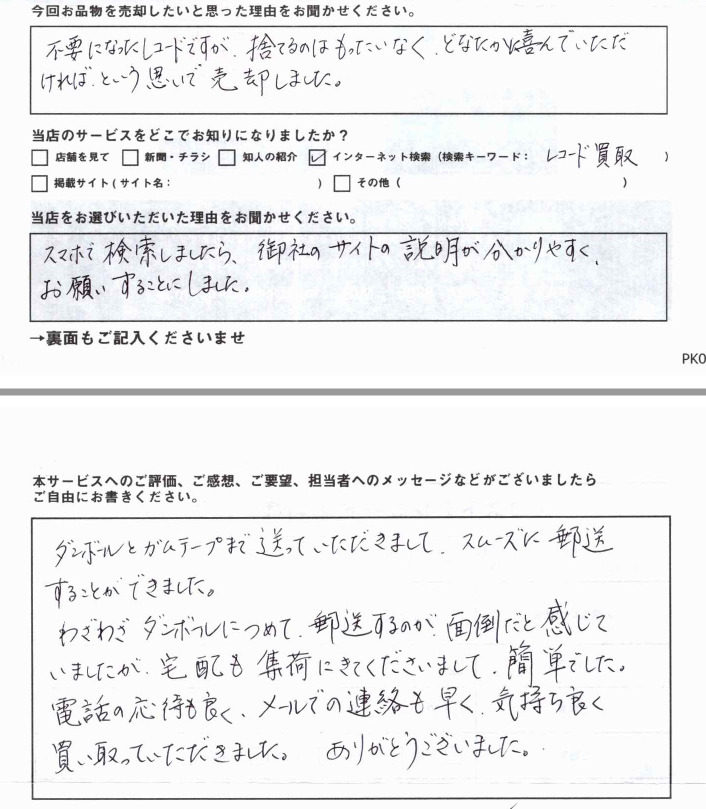 今回お品物を売却したいと思った理由をお聞かせください。
不要になったレコードですが、捨てるのはもったいなく、どなたかに喜んでいただ
ければ、という思いで売却しました。
当店のサービスをどこでお知りになりましたか?
店舗を見て 新聞・チラシ 知人の紹介 ☑ インターネット検索(検索キーワード: レコード買取 )
掲載サイト(サイト名: ) その他( )
当店をお選びいただいた理由をお聞かせください。
スマホで検索しましたら、御社のサイトの説明が分かりやすく、
お願いすることにしました。
→裏面もご記入くださいませ
PK0
本サービスへのご評価、ご感想、ご要望、担当者へのメッセージなどがございましたら
ご自由にお書きください。
ダンボールとガムテープまで送っていただきまして、スムーズに郵送
することができました。
わざわざダンボールにつめて、郵送するのが、面倒だと感じて
いましたが、宅配も集荷にきてくださいまして、簡単でした。
電話の応待も良く、メールでの連絡も早く、気持ち良く
買い取っていただきました。 ありがとうございました。